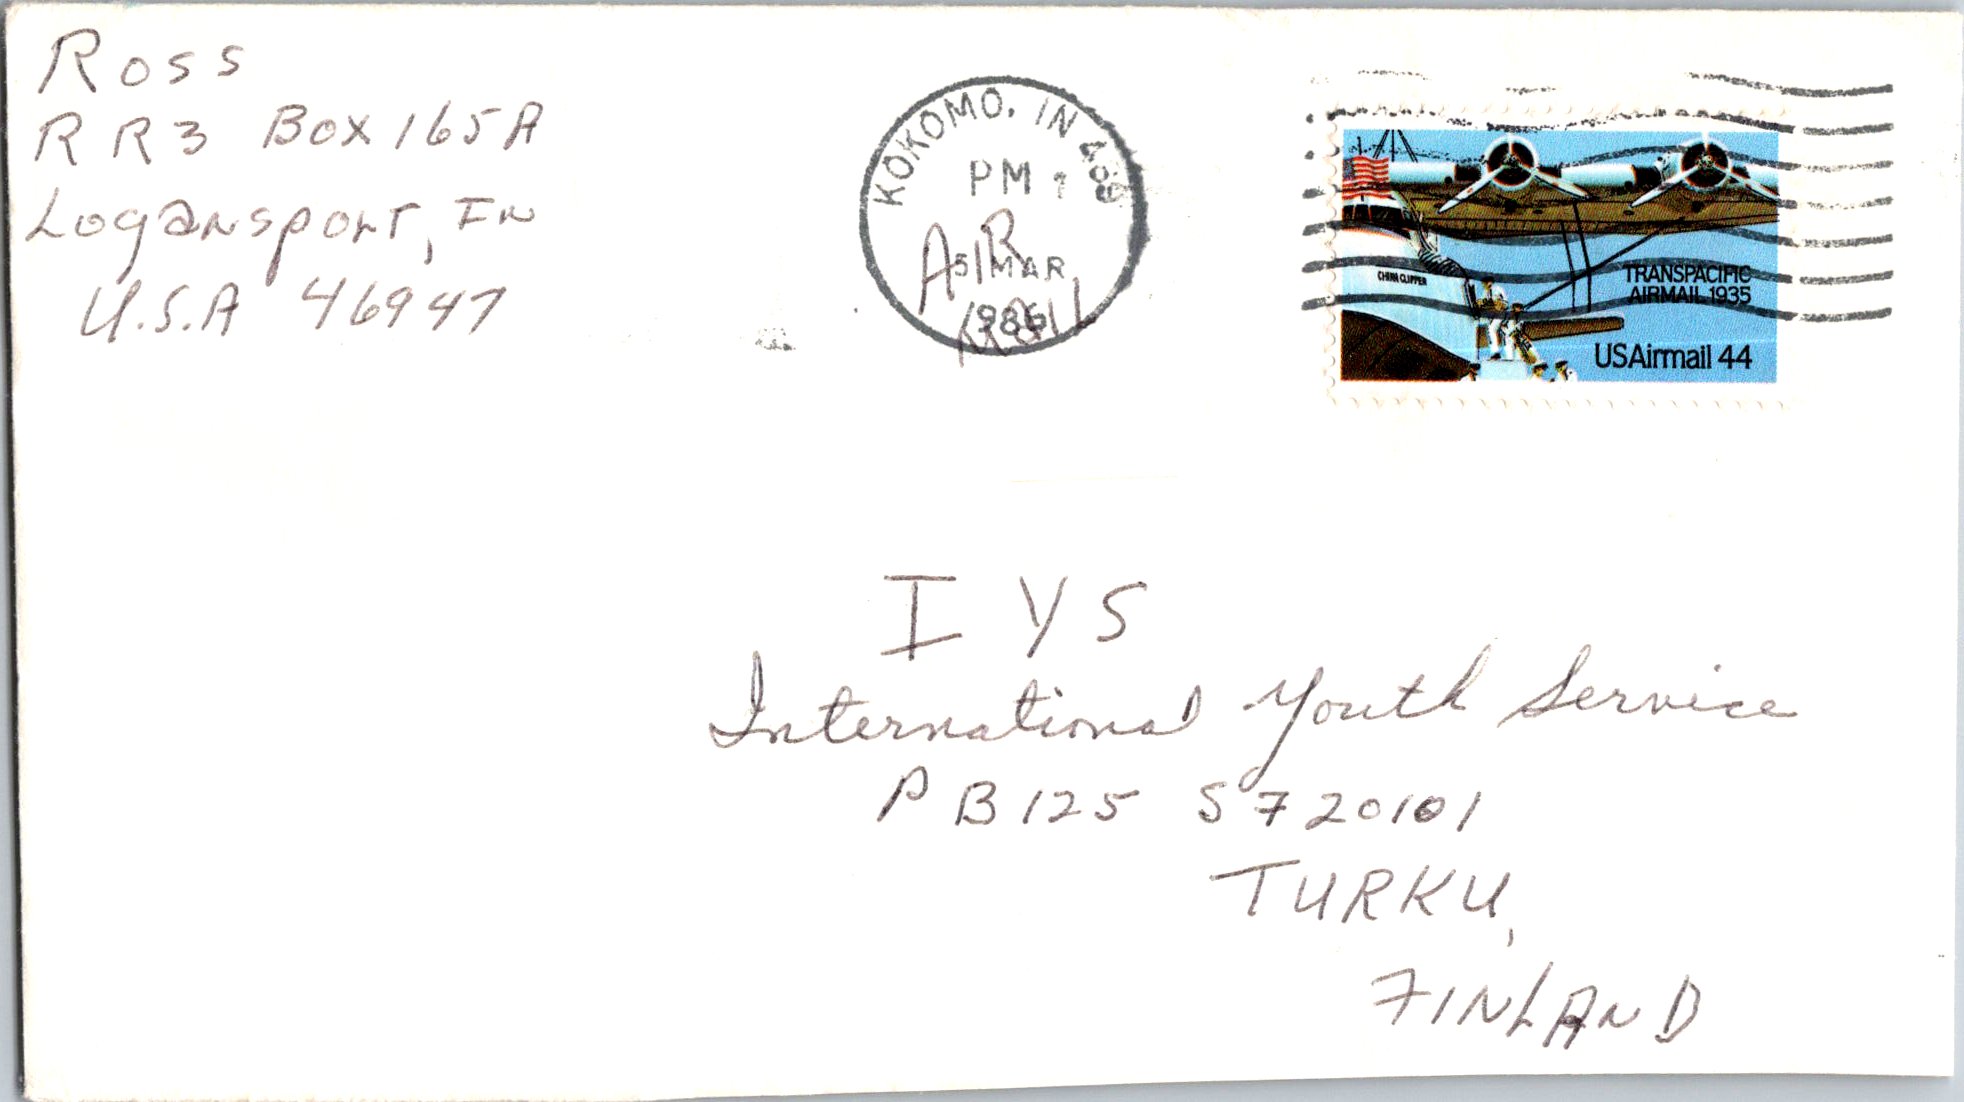 Ross
RR3 Box 165A
Logansport, IN
U.S.A 46947
KOKOMO, IN
PM
5 MAR
1986
AIR
MAIL
CHINA CLIPPER
TRANSPACIFIC
AIRMAIL 1935
USAirmail 44
IYS
International Youth Service
PB 125 SF 20101
TURKU,
FINLAND